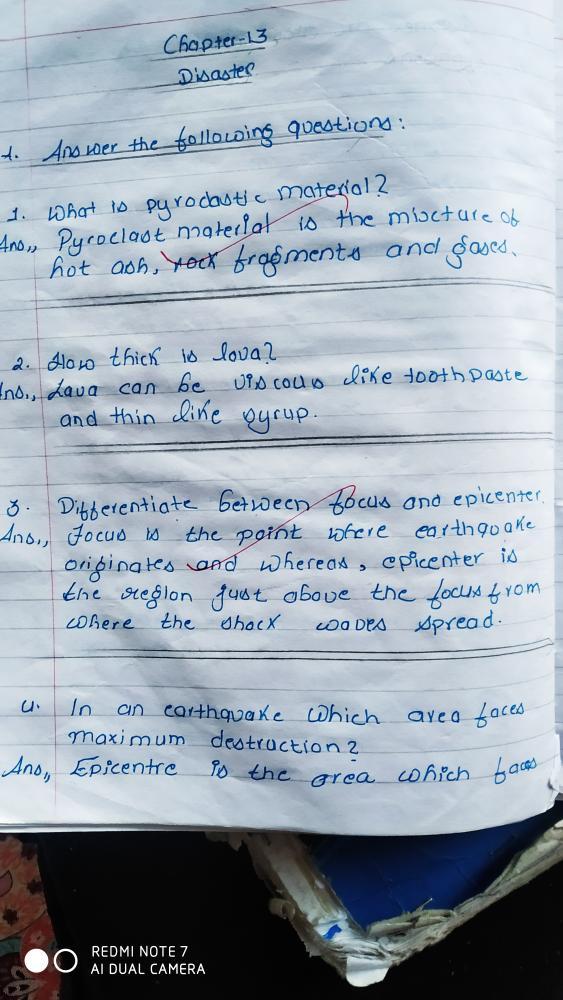 Chapter-13
Disaster
1. Answer the following questions:
1. What is pyroclastic material?
Ans,, Pyroclast material is the mixture of
hot ash, rock fragments and gases.
2. How thick is lava?
Ans., Lava can be viscous like toothpaste
and thin like syrup.
3. Differentiate between focus and epicenter.
Ans,, Focus is the point where earthquake
originates and whereas, epicenter is
the region just above the focus from
where the shock waves spread.
4. In an earthquake which area faces
maximum destruction?
Ans,, Epicentre is the area which faces
REDMI NOTE 7
AI DUAL CAMERA